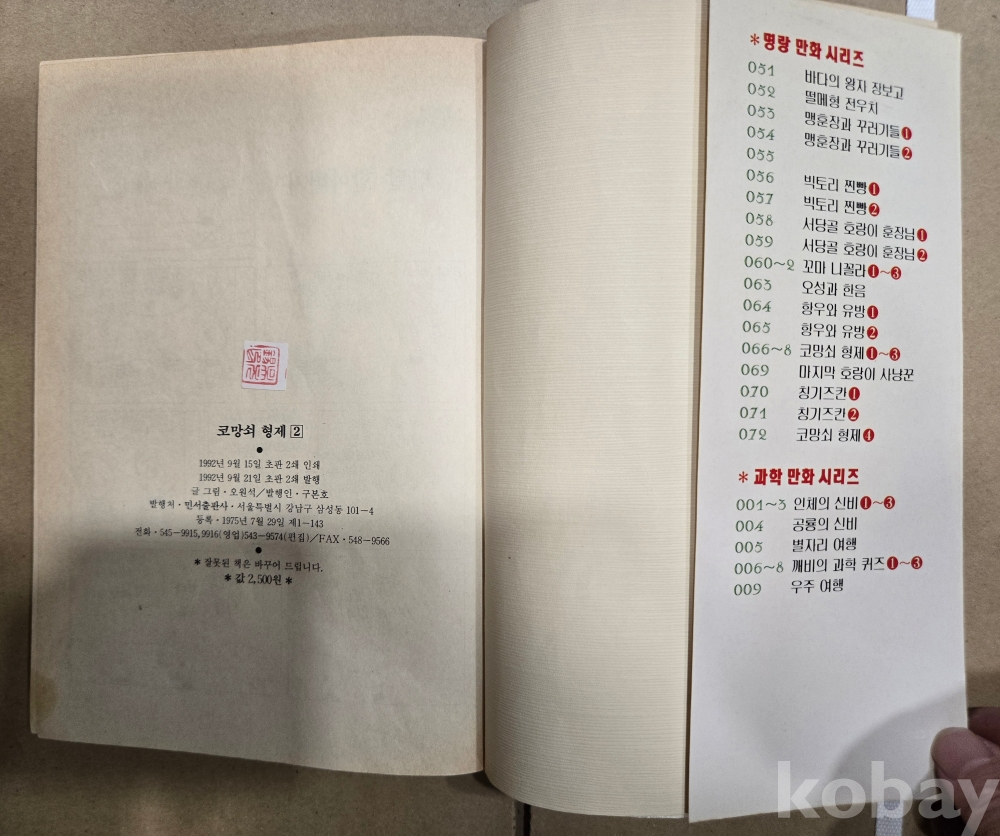 코망쇠 형제 2
●
1992년 9월 15일 초판 2쇄 인쇄
1992년 9월 21일 초판 2쇄 발행
글 그림・오원석／발행인・구본호
발행처・민서출판사・서울특별시 강남구 삼성동 101-4
등록・1975년 7월 29일 제1-143
전화・545-9915, 9916(영업)543-9574(편집)／FAX・548-9566
●
＊잘못된 책은 바꾸어 드립니다.
＊값 2,500원＊
＊명랑 만화 시리즈
051 바다의 왕자 장보고
052 떨메형 전우치
053 맹훈장과 꾸러기들❶
054 맹훈장과 꾸러기들❷
055
056 빅토리 찐빵❶
057 빅토리 찐빵❷
058 서당골 호랑이 훈장님❶
059 서당골 호랑이 훈장님❷
060～2 꼬마 니꼴라❶～❸
063 오성과 한음
064 항우와 유방❶
065 항우와 유방❷
066～8 코망쇠 형제❶～❸
069 마지막 호랑이 사냥꾼
070 칭기즈칸❶
071 칭기즈칸❷
072 코망쇠 형제❹
＊과학 만화 시리즈
001～3 인체의 신비❶～❸
004 공룡의 신비
005 별자리 여행
006～8 깨비의 과학 퀴즈❶～❸
009 우주 여행
kobay